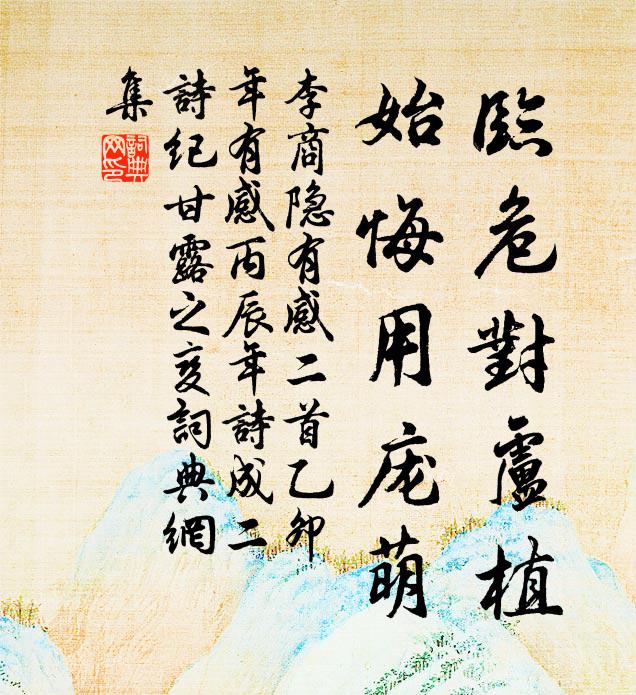 臨危對盧植
始悔用庞萌
李商隐有感二首乙卯
年有感丙辰年詩成二
詩纪甘露之变詞典網
集
詞典網印